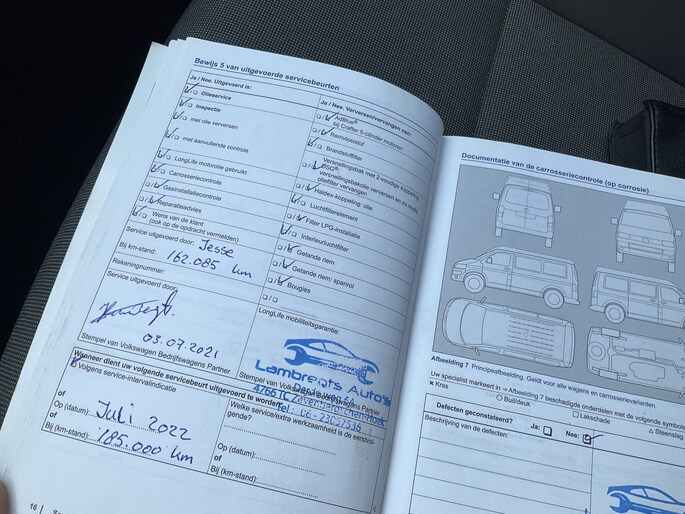 Bewijs 5 van uitgevoerde servicebeurten
Ja / Nee. Uitgevoerd is:
Olieservice
Inspectie
met olie verversen
met aanvullende controle
LongLife motorolie gebruikt
Carrosseriecontrole
Gasinstallatiecontrole
Reparatieadvies
Wens van de klant
(ook op de opdracht vermelden)
Service uitgevoerd door: Jesse
Bij km-stand: 162.085 km
Rekeningnummer:
Service uitgevoerd door:
03.07.2021
Stempel van Volkswagen Bedrijfswagens Partner
Ja / Nee. Verversen/vervangen van:
AdBlue®
bij Crafter 5-cilinder motoren
Remvloeistof
Brandstoffilter
Versnellingsbak met 2-voudige koppeling
DSG®:
versnellingsbakolie verversen en zo nodig
oliefilter vervangen
Haldex-koppeling: olie
Luchtfilterelement
Filter LPG-installatie
Interieurluchtfilter
Getande riem
Getande riem: spanrol
Bougies
LongLife mobiliteitsgarantie:
Lambregts Auto's
Stempel van Volkswagen Bedrijfswagens Partner
Tel: 06-23057536
Wanneer dient uw volgende servicebeurt uitgevoerd te worden
Volgens service-intervalindicatie
of
Op (datum): Juli 2022
of
Bij (km-stand): 185.000 km
Welke service/extra werkzaamheid is de eerstvol-
gende?
Op (datum):
of
Bij (km-stand):
16
Documentatie van de carrosseriecontrole (op corrosie)
Afbeelding 7 Principeafbeelding. Geldt voor alle wagens en carrosserievarianten.
Uw specialist markeert in ⇒ Afbeelding 7 beschadigde onderdelen met de volgende symbole
× Kras
○ Buil/deuk
□ Lakschade
△ Steenslag
Defecten geconstateerd? Ja: Nee:
Beschrijving van de defecten: